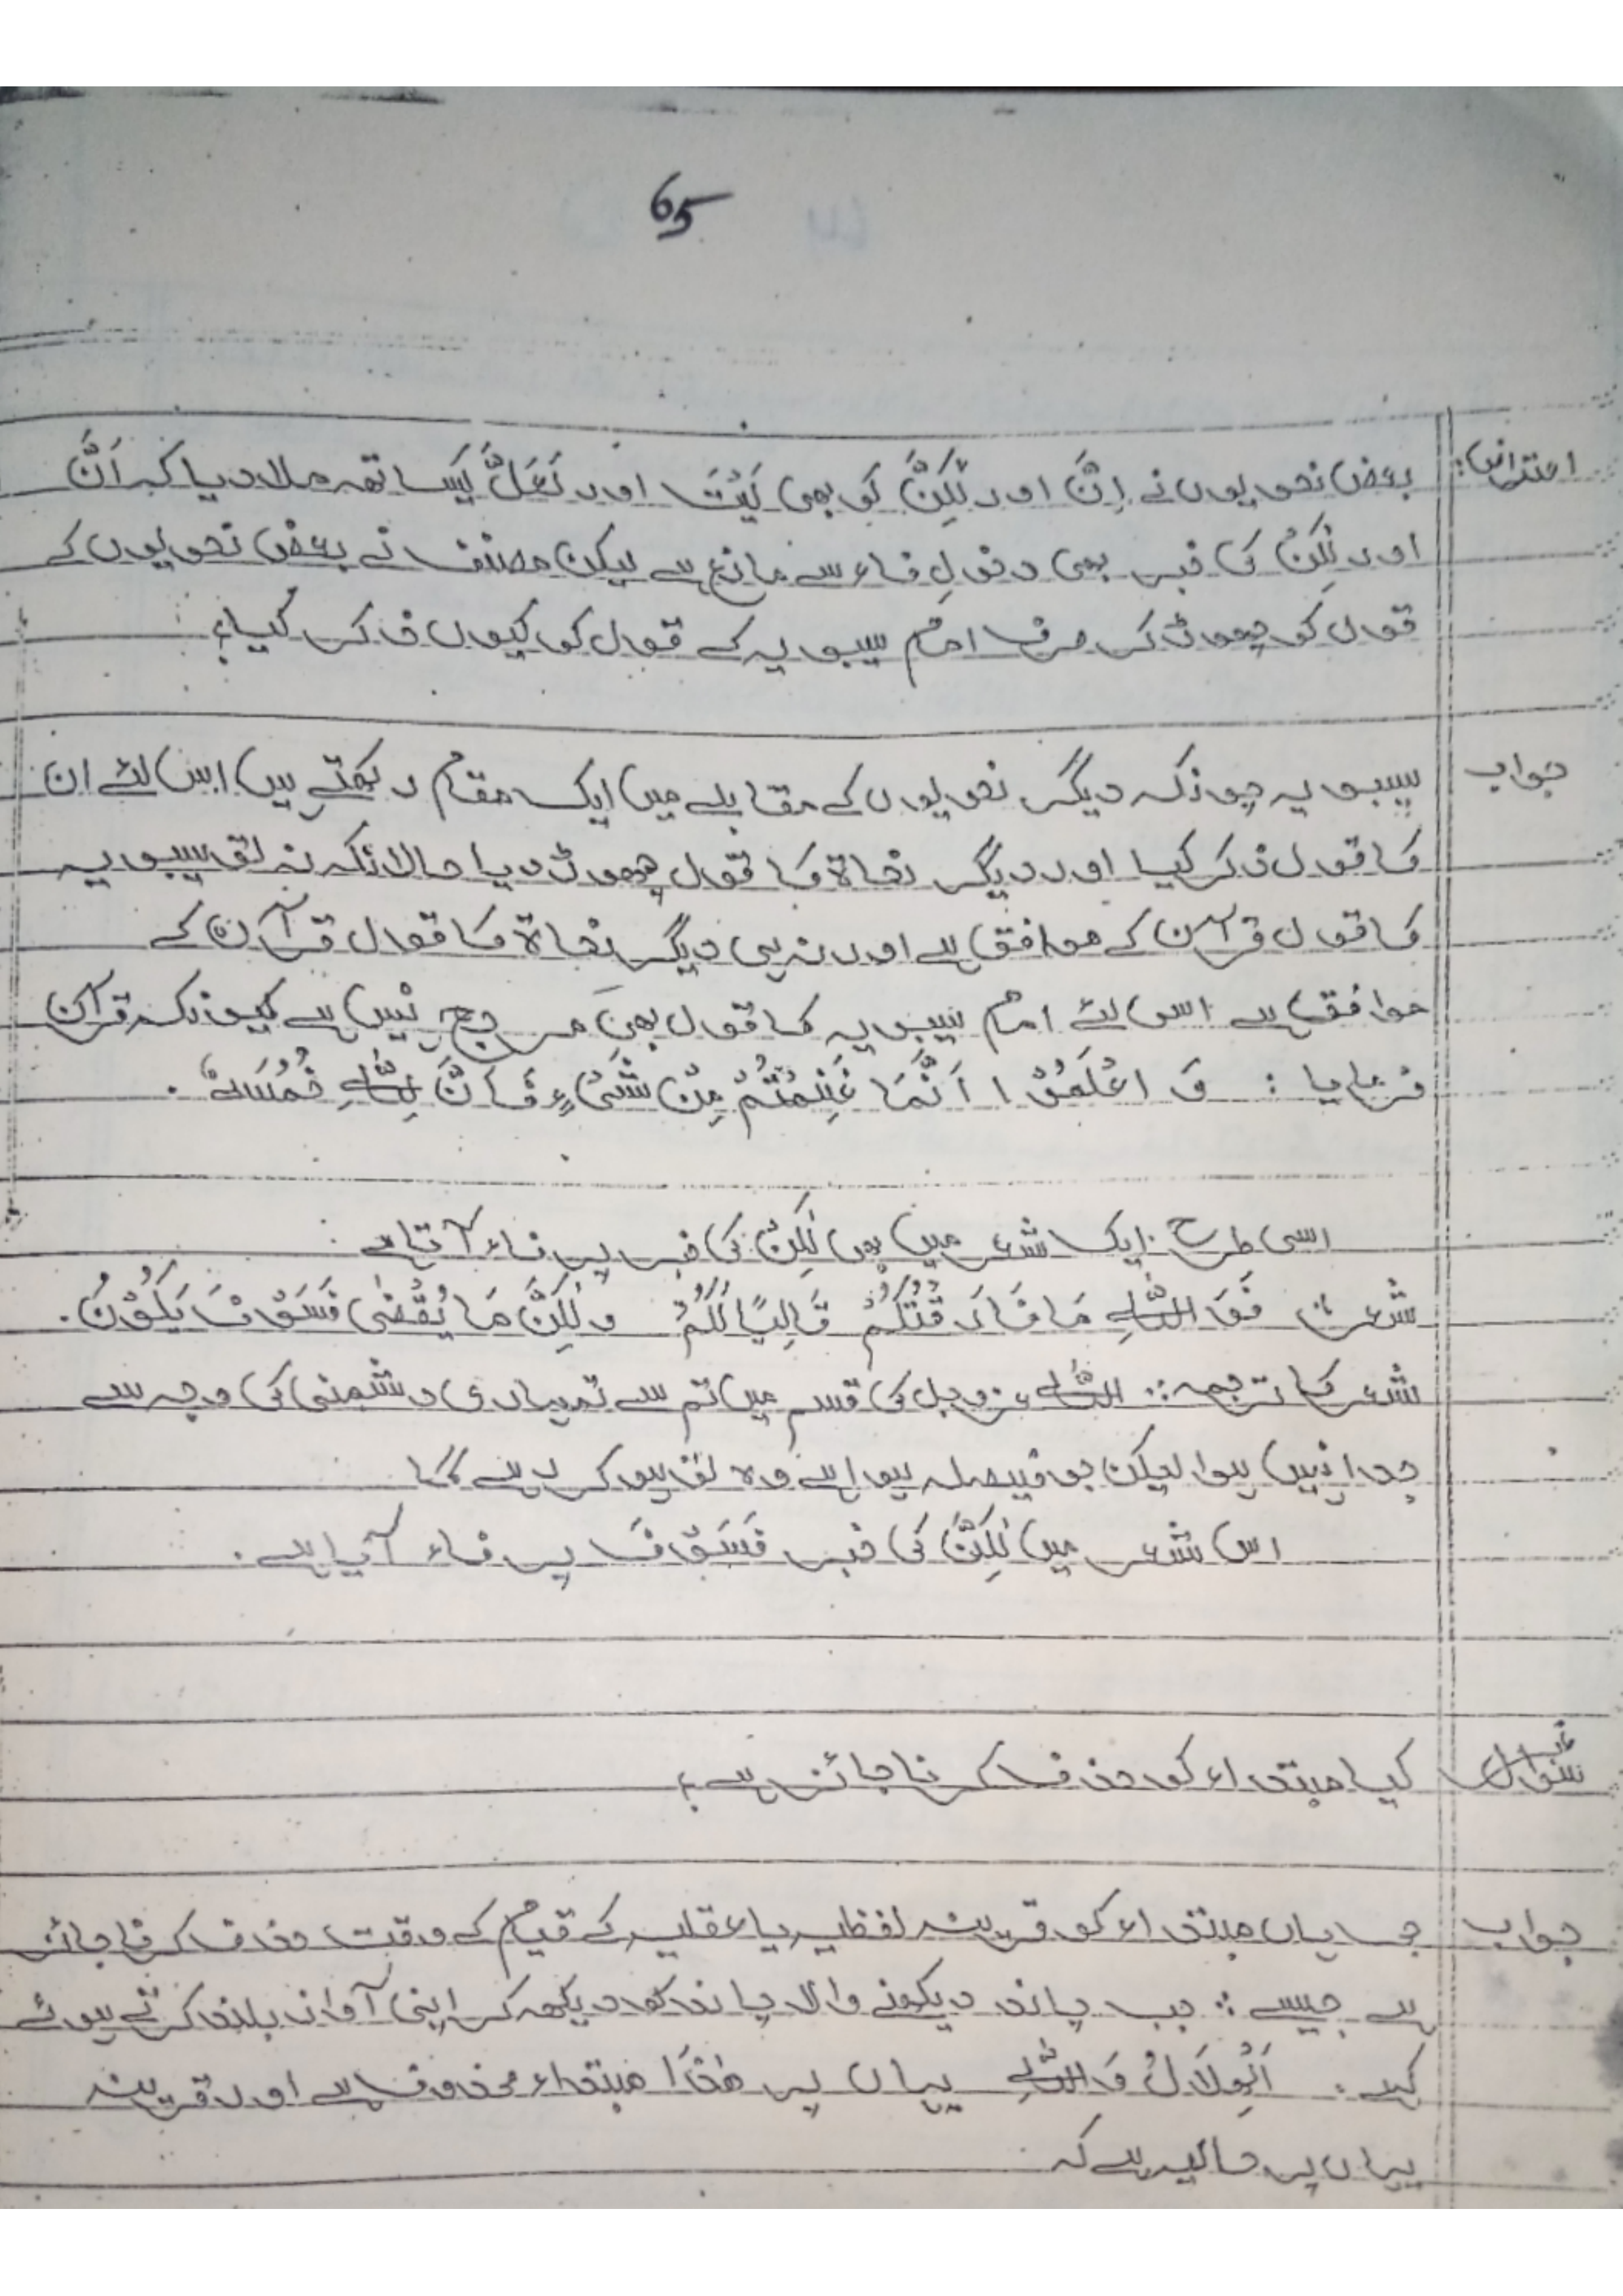 65
اعتراض: بعض نحویوں نے اِنَّ اور لٰکِنَّ کو بھی لَیْتَ اور لَعَلَّ کیساتھ ملا دیا کہ اَنَّ
اور لٰکِنَّ کی خبر بھی دخولِ فاء سے مانع ہے لیکن مصنف نے بعض نحویوں کے
قول کو چھوڑ کر صرف امام سیبویہ کے قول کو کیوں ذکر کیا؟
جواب سیبویہ چونکہ دیگر نحویوں کے مقابلے میں ایک مقام رکھتے ہیں اس لئے ان
کا قول ذکر کیا اور دیگر نحاۃ کا قول چھوڑ دیا حالانکہ نہ تو سیبویہ
کا قول قرآن کے موافق ہے اور نہ ہی دیگر نحاۃ کا قول قرآن کے
موافق ہے اس لئے امام سیبویہ کا قول بھی مرجح نہیں ہے کیونکہ قرآن
فرمایا : وَ اعْلَمُوْا اَنَّمَا غَنِمْتُمْ مِّنْ شَیْءٍ فَاَنَّ لِلّٰهِ خُمُسَهٗ .
اسی طرح ایک شعر میں بھی لٰکِنَّ کی خبر پر فاء آتا ہے :
شعر فَوَ اللّٰهِ مَا فَارَقْتُکُمْ قَالِیًا لَکُمْ وَلٰکِنَّ مَا یُقْضٰی فَسَوْفَ یَکُوْنُ .
شعر کا ترجمہ : اللّٰہ عزوجل کی قسم میں تم سے تمہاری دشمنی کی وجہ سے
جدا نہیں ہوا لیکن جو فیصلہ ہوا ہے وہ تو ہو کر رہے گا
اس شعر میں لٰکِنَّ کی خبر فَسَوْفَ پر فاء آیا ہے .
سوال کیا مبتداء کو حذف کرنا جائز ہے؟
جواب جی ہاں مبتداء کو قرینہ لفظیہ یا عقلیہ کے قیام کے وقت حذف کرنا جائز
ہے جیسے : جب چاند دیکھنے والا چاند کو دیکھ کر اپنی آواز بلند کرتے ہوئے
کہے : اَلْهِلَالُ وَاللّٰهِ یہاں پر هٰذَا مبتداء محذوف ہے اور قرینہ
یہاں پر حالیہ ہے کہ